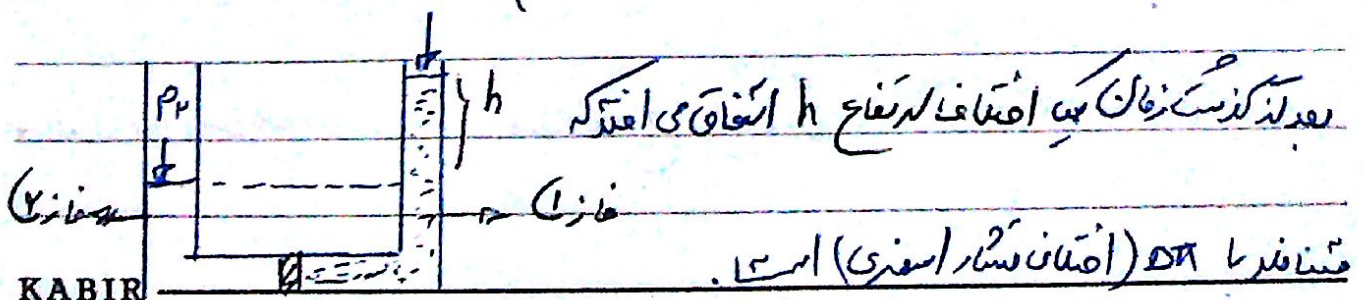 P۲
h
بعد از گذشت زمان یک اختلاف ارتفاع h اتفاق می افتد که
فاز (۲)
فاز (۱)
متناظر با Δπ (اختلاف فشار اسمزی) است.
KABIR